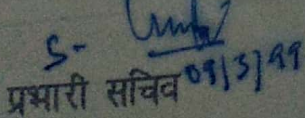 S-
प्रभारी सचिव 09/3/99